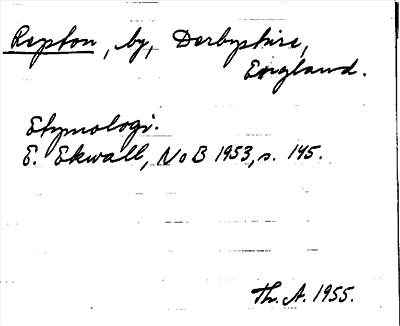 Repton, by, Derbyshire,
England.
Etymologi.
E. Ekwall, NoB 1953, s. 145.
Th. A. 1955.